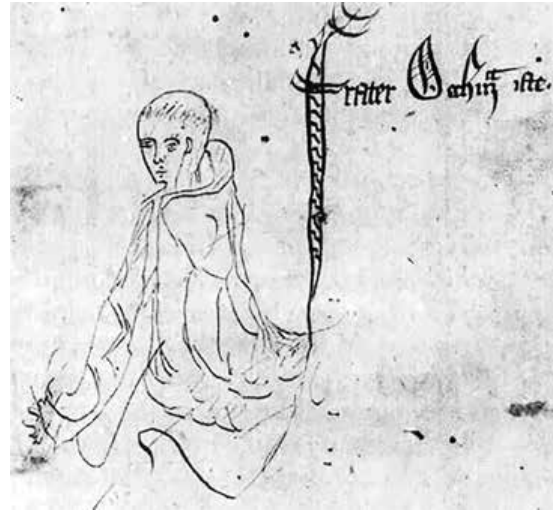 frater Occham iste.